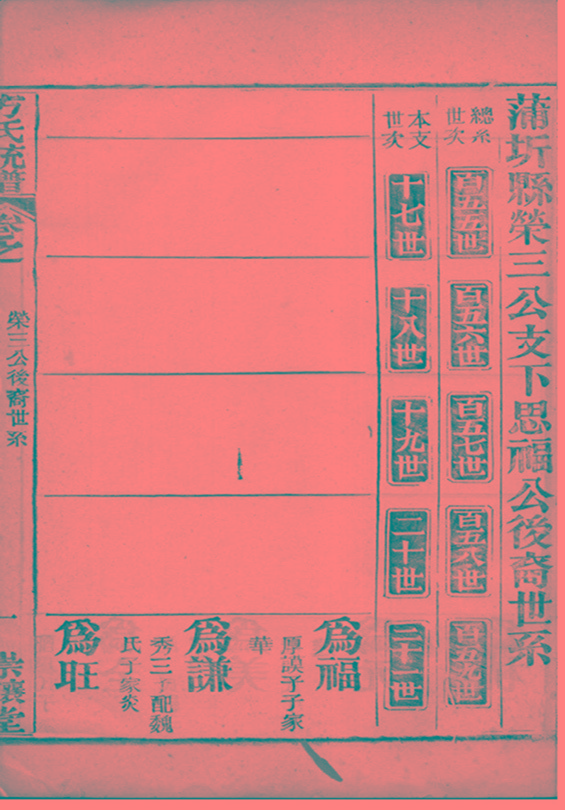 蒲圻縣榮三公支下思福公後裔世系
總系
世次
百五五世
百五六世
百五七世
百五八世
百五九世
本支
世次
十七世
十八世
十九世
二十世
二十一世
為福
厚謨子子家
華
為謙
秀三子配魏
氏子家炎
為旺
方氏統譜
卷之一
榮三公後裔世系
一
崇讓堂